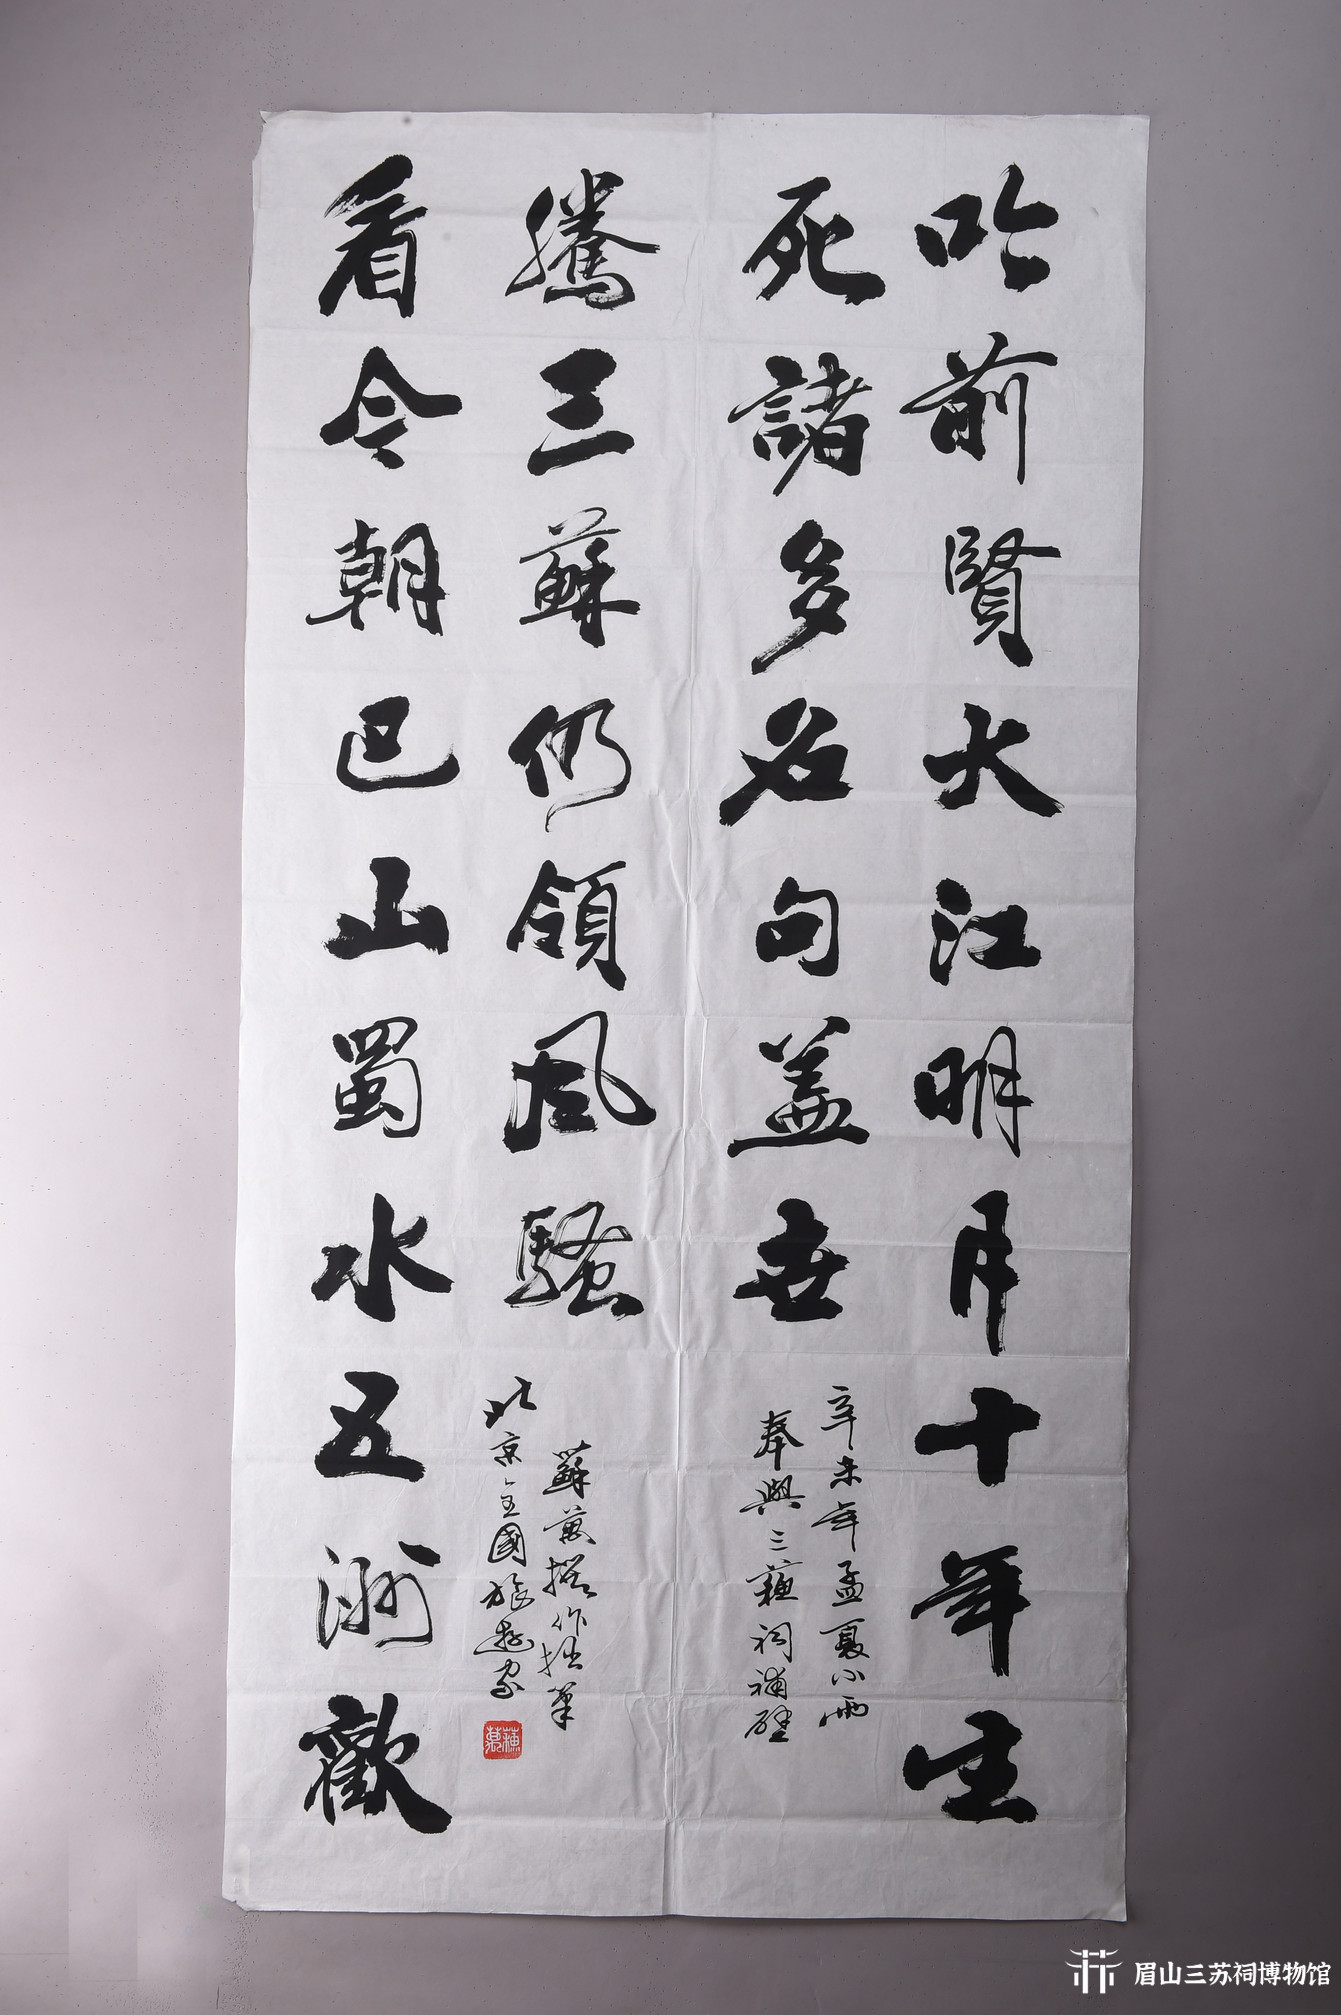 吟前賢大江明月十年生
死諸多名句盖世
辛未年孟夏小雨
奉與三蘇祠補壁
看今朝巴山蜀水五洲歡
騰三蘇仍領風騷
蘇萬撰作拙筆
北京全國旅遊家
眉山三苏祠博物馆